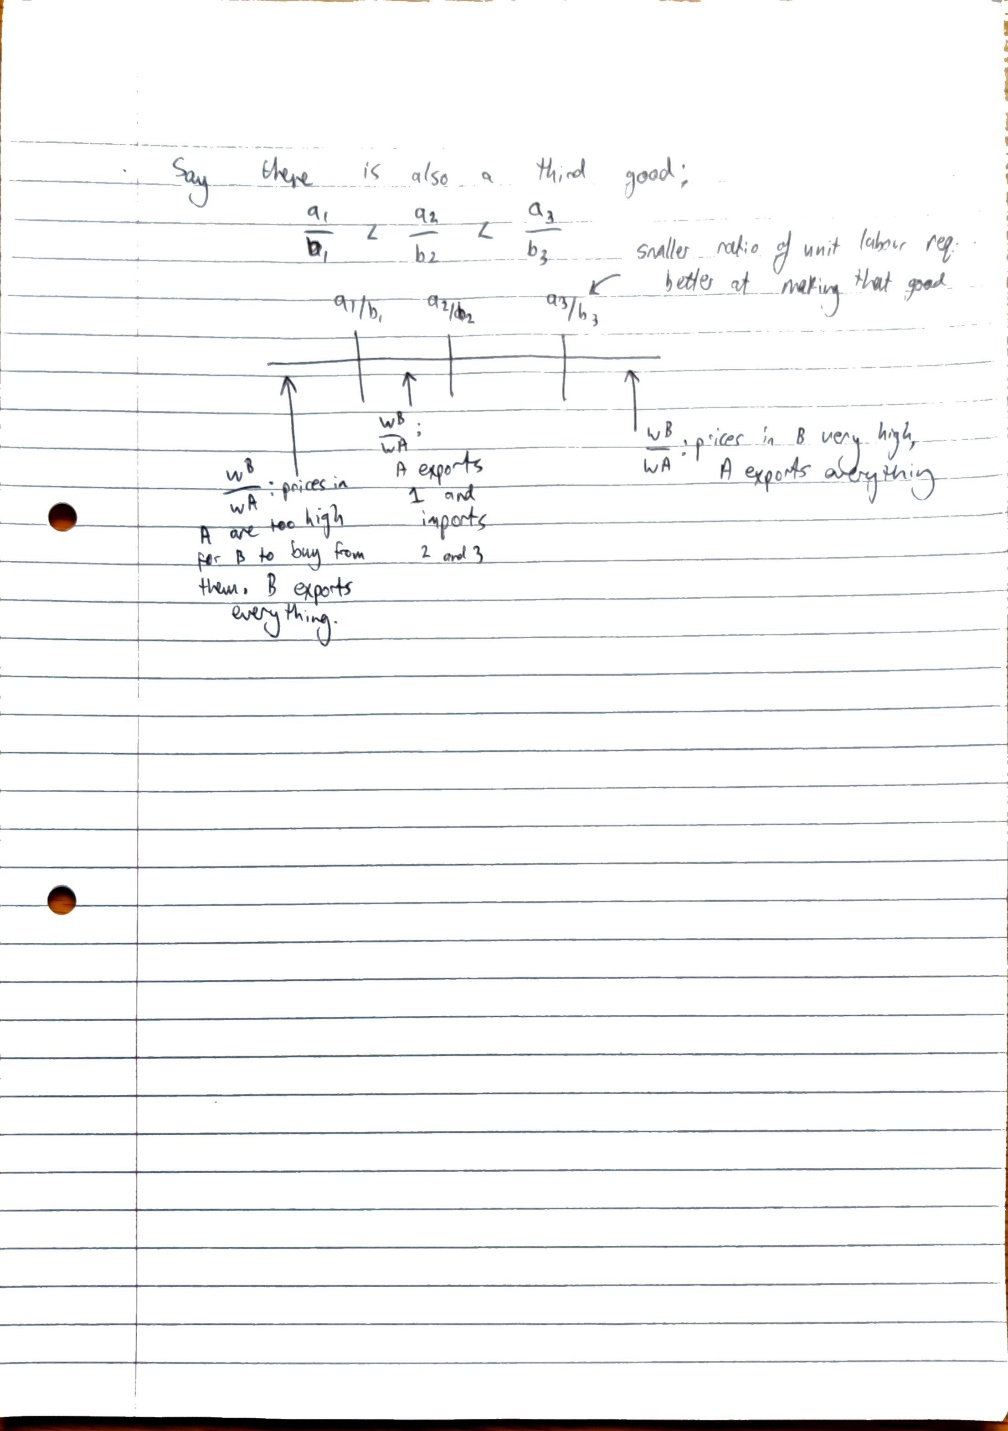 Say there is also a third good;
a1/b1 < a2/b2 < a3/b3
smaller ratio of unit labour req.
better at making that good
a1/b1 a2/b2 a3/b3
wB/wA : prices in
A are too high
for B to buy from
them. B exports
everything.
wB/wA ;
A exports
1 and
imports
2 and 3
wB/wA : prices in B very high,
A exports everything